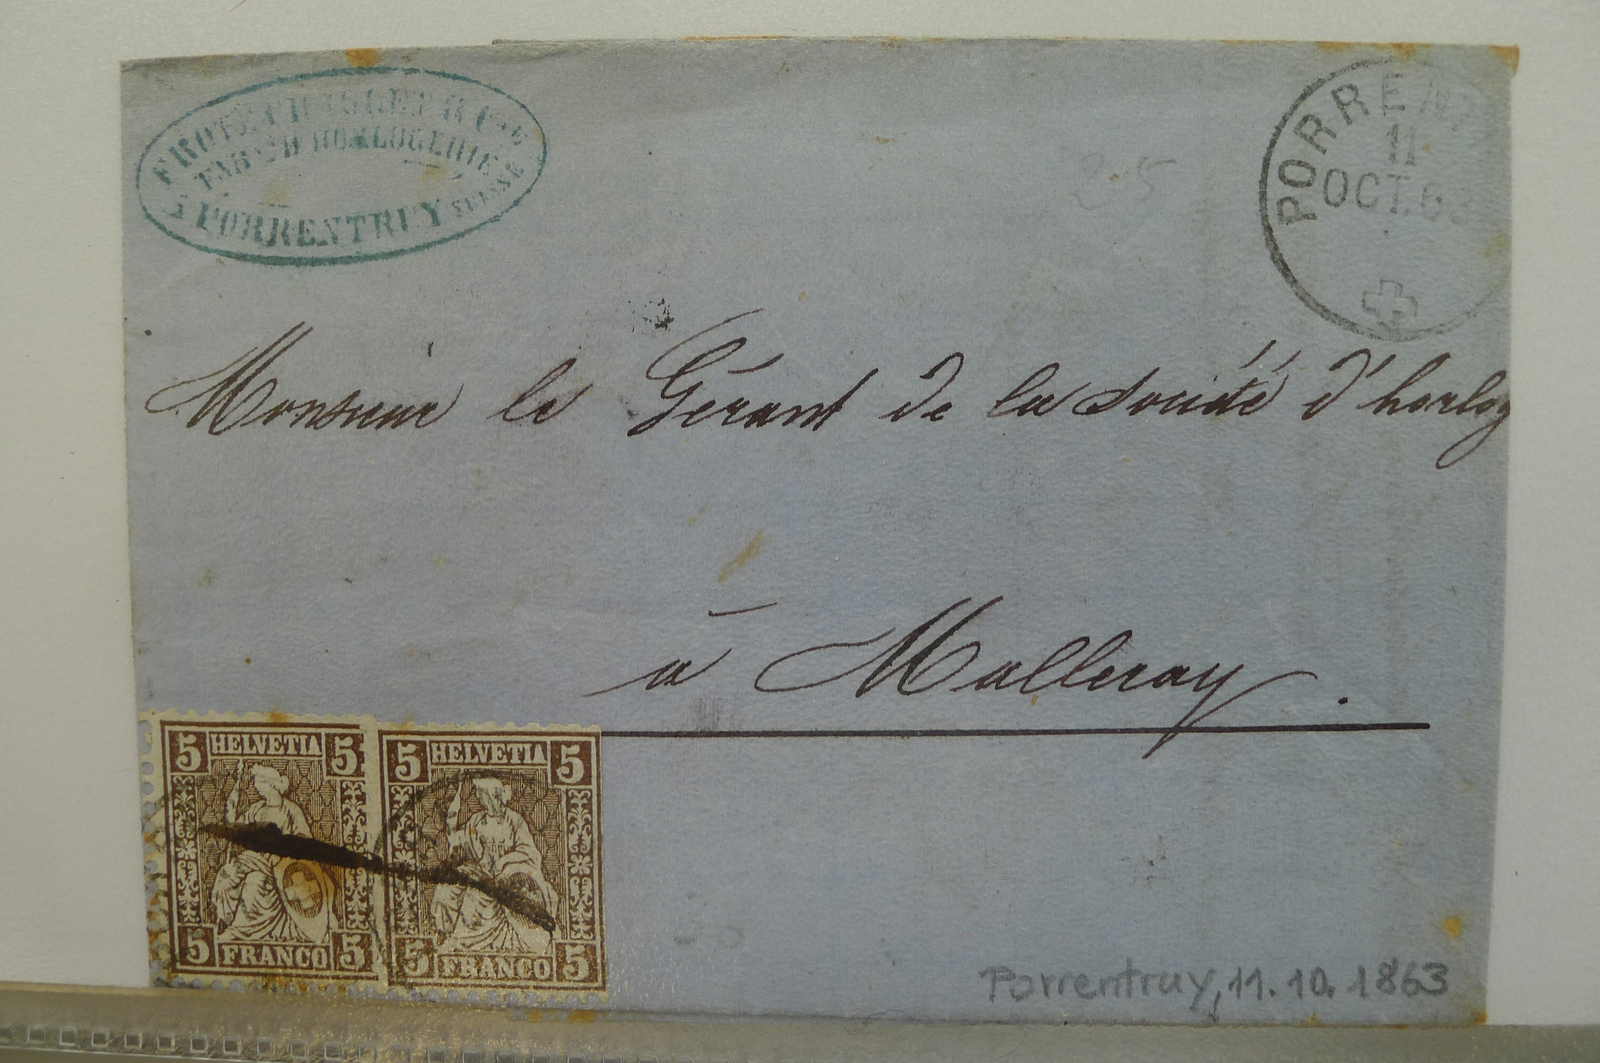 FAB. D'HORLOGERIE
à PORRENTRUY SUISSE
PORRENT
11
OCT. 63
25
Monsieur le Gérant de la Société d'horlog
à Malleray.
5 HELVETIA 5
5 FRANCO 5
5 HELVETIA 5
5 FRANCO 5
Porrentruy, 11.10.1863